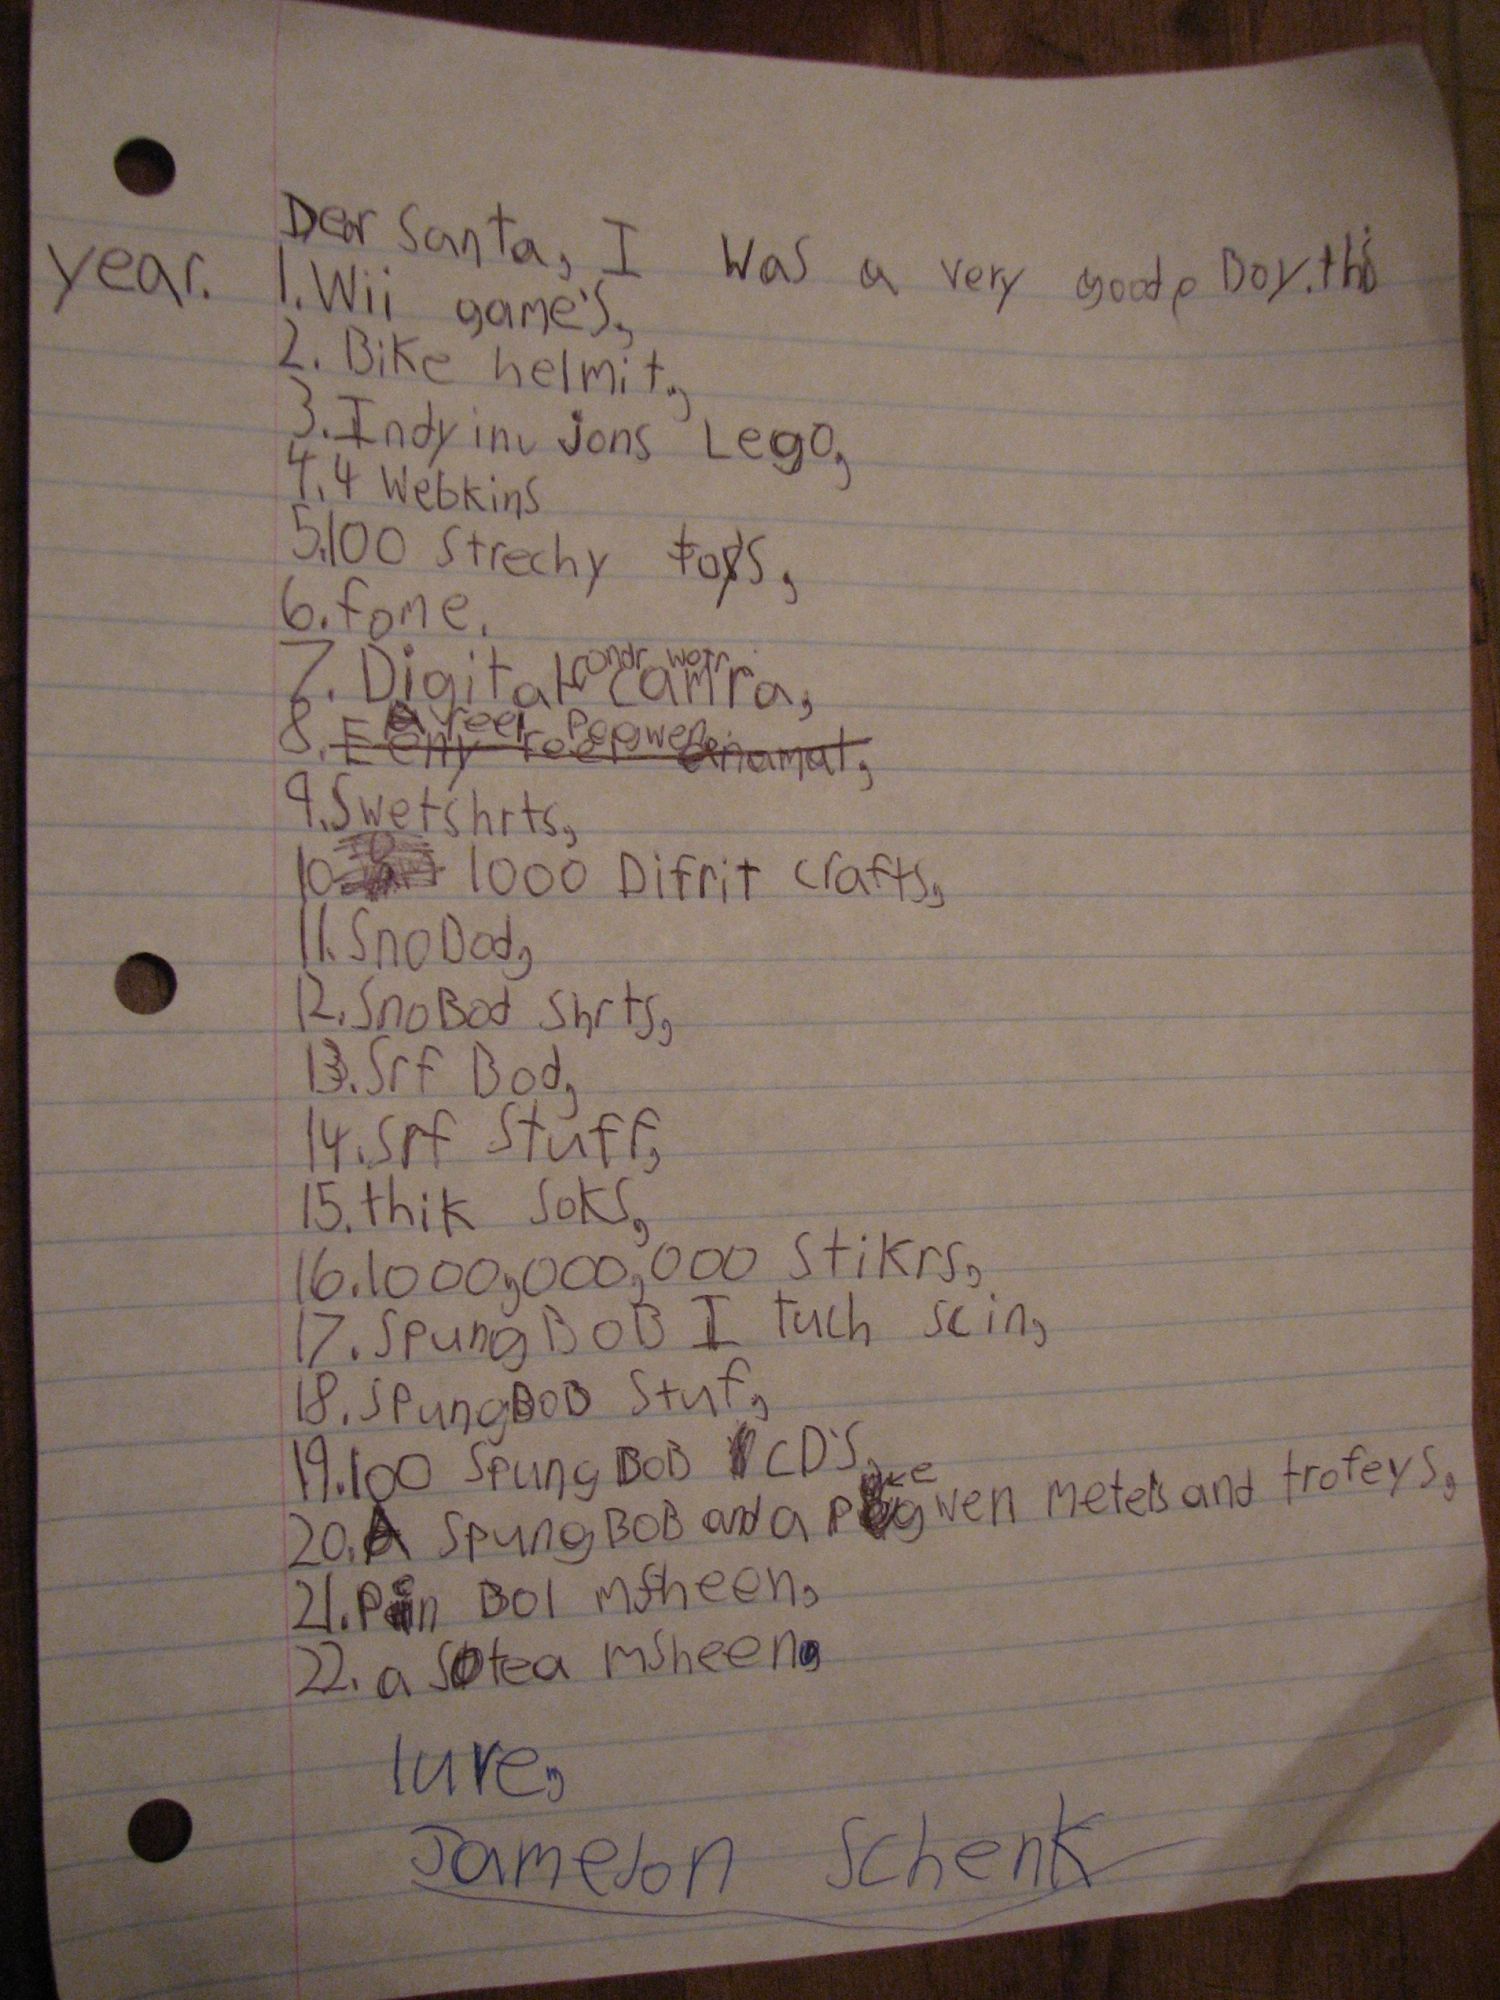 Dear Santa, I was a very good Boy. this
year.
1. Wii game's,
2. Bike helmit,
3. Indyinu Jons Lego,
4. 4 Webkins
5. 100 Strechy toys,
6. fone.
7. Digital ondr watr camra,
8. A reel Peegwen,
Eeny reel anamal,
9. Swetshrts,
10. 1000 Difrit crafts,
11. SnoBod,
12. SnoBod Shrts,
13. Srf Bod,
14. Srf Stuff,
15. thik soks,
16. 1000,000,000 Stikrs,
17. SpungBoB I tuch scin,
18. SpungBoB Stuf,
19. 100 SpungBoB CD'S,
20. A SpungBoB and a wen metels and trofeys,
21. Pin Bol msheen,
22. a Sotea msheen,
luve,
Jameson Schenk